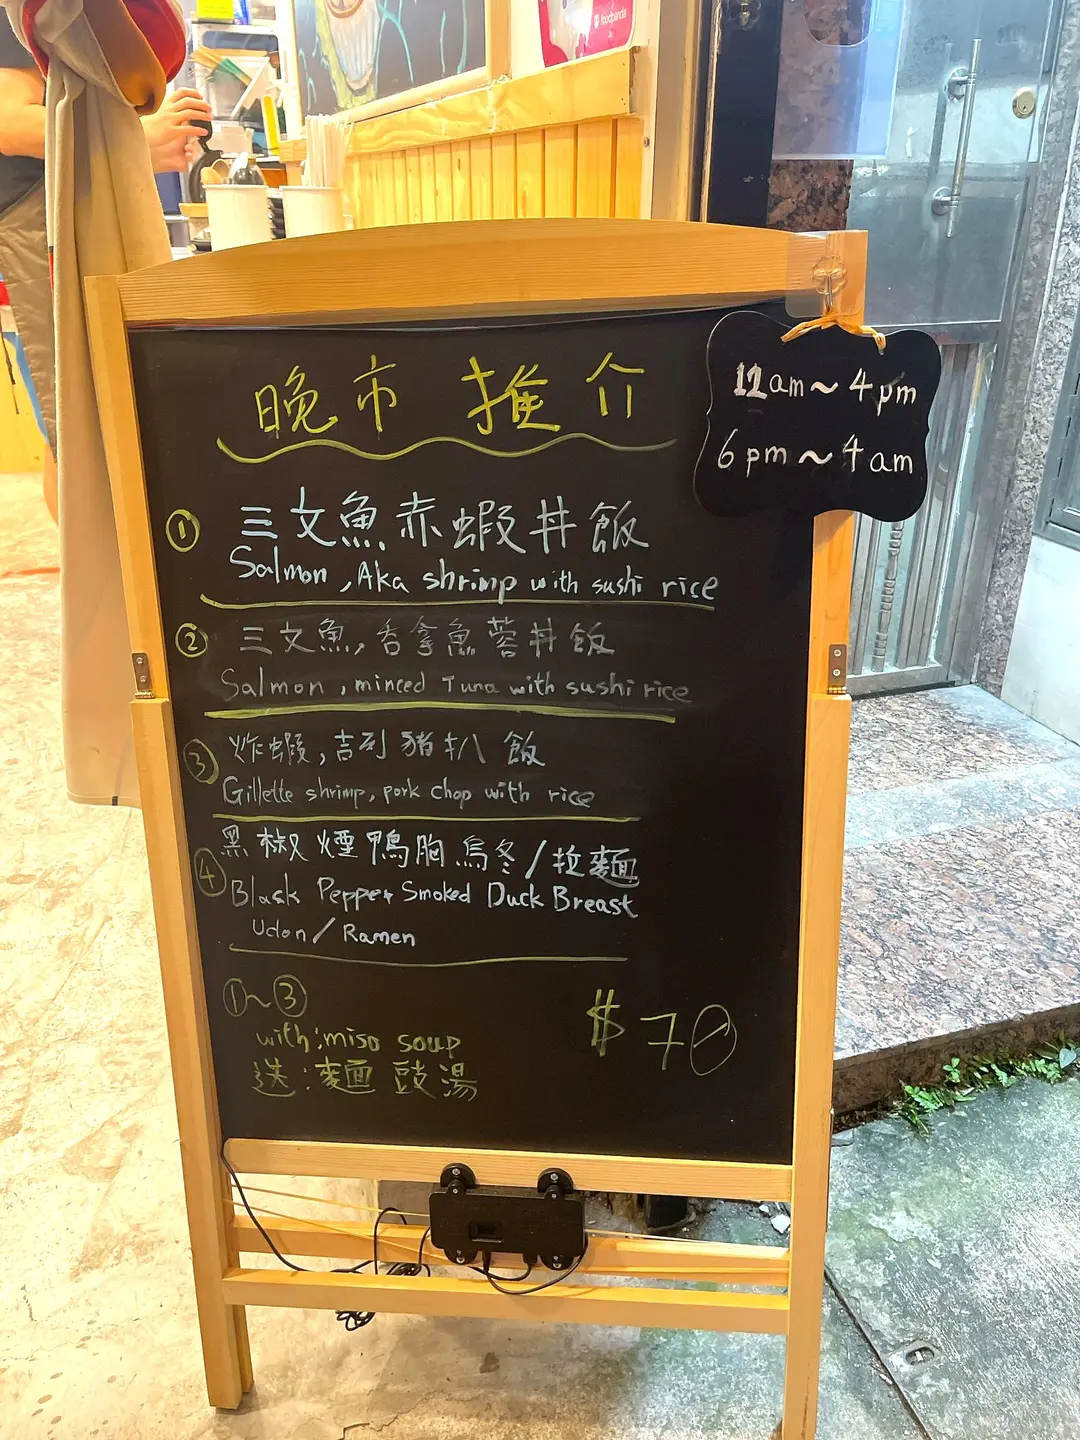 foodpanda
晚市 推介
12am～4pm
6pm～4am
① 三文魚赤蝦丼飯
Salmon , Aka shrimp with sushi rice
② 三文魚,吞拿魚蓉丼飯
Salmon , minced Tuna with sushi rice
③ 炸蝦,吉列豬扒飯
Gillette shrimp, pork chop with rice
④ 黑椒煙鴨胸烏冬/拉麵
Black Pepper Smoked Duck Breast
Udon / Ramen
①～③
with: miso soup
送:麵豉湯
$70